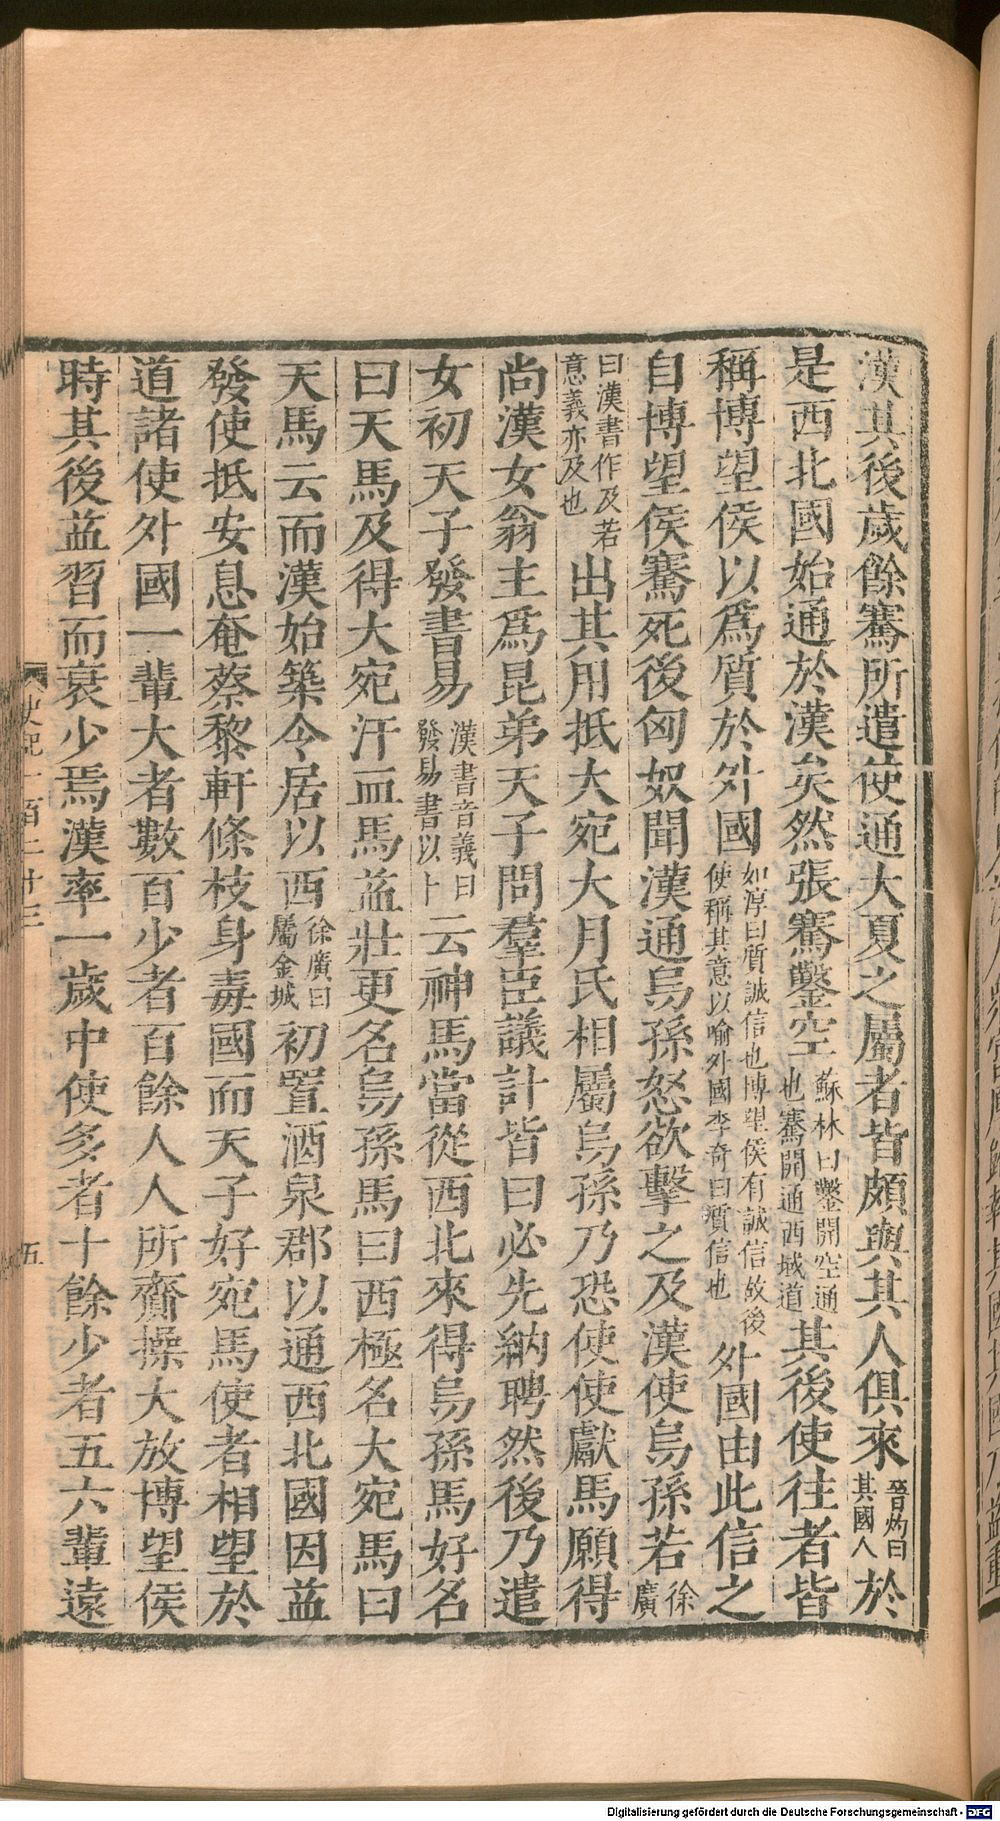 漢其後歲餘騫所遣使通大夏之屬者皆頗與其人俱來晉灼曰其國人於
是西北國始通於漢矣然張騫鑿空蘇林曰鑿開空通也騫開通西域道其後使往者皆
稱博望侯以爲質於外國如淳曰質誠信也博望侯有誠信故後使稱其意以喻外國李奇曰質信也外國由此信之
自博望侯騫死後匈奴聞漢通烏孫怒欲擊之及漢使烏孫若徐廣
曰漢書作及若意義亦及也出其用抵大宛大月氏相屬烏孫乃恐使使獻馬願得
尚漢女翁主爲昆弟天子問羣臣議計皆曰必先納聘然後乃遣
女初天子發書易漢書音義曰發易書以卜云神馬當從西北來得烏孫馬好名
曰天馬及得大宛汗血馬益壯更名烏孫馬曰西極名大宛馬曰
天馬云而漢始築令居以西徐廣曰屬金城初置酒泉郡以通西北國因益
發使抵安息奄蔡黎軒條枝身毒國而天子好宛馬使者相望於
道諸使外國一輩大者數百少者百餘人人所齎操大放博望侯
時其後益習而衰少焉漢率一歲中使多者十餘少者五六輩遠
史記一百二十三
五
Digitalisierung gefördert durch die Deutsche Forschungsgemeinschaft - DFG